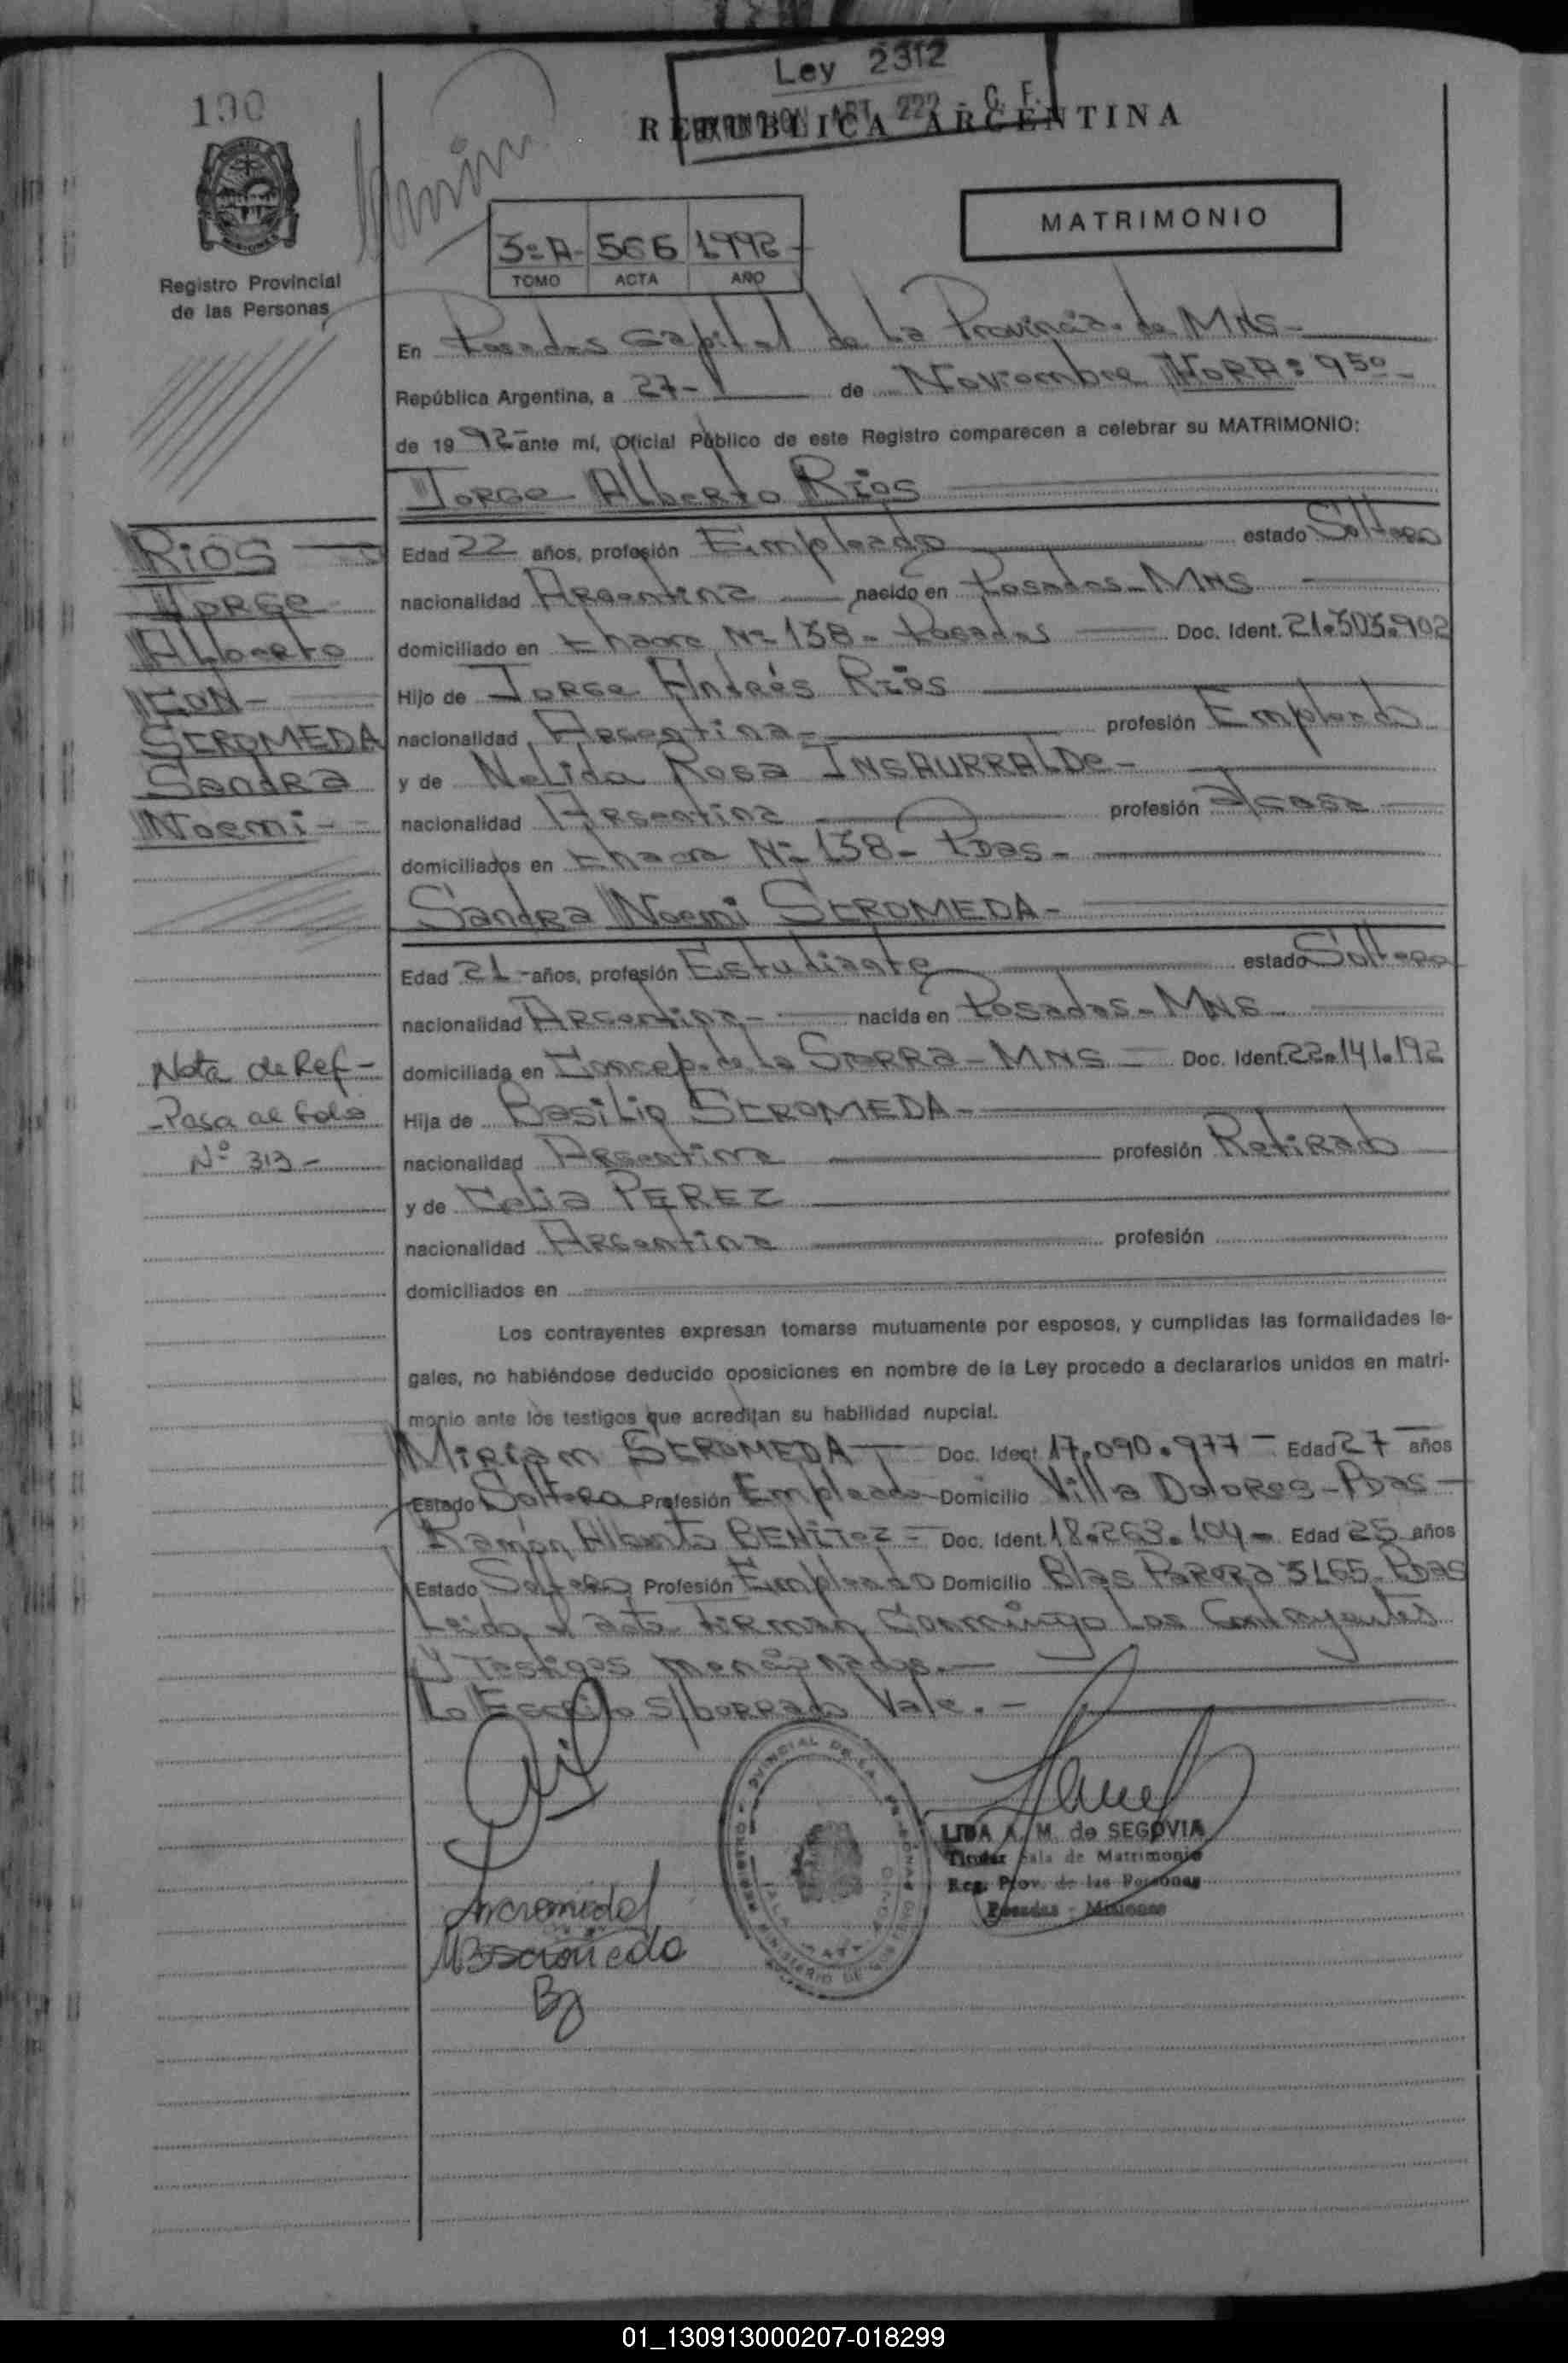 Ley 2312
ART. 222 - C. F.
REPUBLICA ARGENTINA
190
Registro Provincial
de las Personas
3º A- 566 1992-
TOMO ACTA AÑO
MATRIMONIO
En Posadas Capital de La Provincia de MNS-
República Argentina, a 27- de Noviembre HORA: 9 50-
de 19 92- ante mí, Oficial Público de este Registro comparecen a celebrar su MATRIMONIO:
Jorge Alberto Rios
Edad 22 años, profesión Empleado estado Soltero
nacionalidad Argentina nacido en Posadas-MNS
domiciliado en Chacra Nº 138- Posadas Doc. Ident. 21.303.902
Hijo de Jorge Andrés Rios
nacionalidad Argentina- profesión Empleado
y de Nelida Rosa INSAURRALDE-
nacionalidad Argentina profesión
domiciliados en Chacra Nº 138- Pdas-
Sandra Noemi SCROMEDA-
Edad 21- años, profesión Estudiante estado Soltera
nacionalidad Argentina- nacida en Posadas-MNS-
domiciliada en Concep. de la Sierra-MNS- Doc. Ident. 22.141.192
Hija de Basilio SCROMEDA-
nacionalidad Argentina profesión Retirado
y de Celia PEREZ
nacionalidad Argentina profesión
domiciliados en
Los contrayentes expresan tomarse mutuamente por esposos, y cumplidas las formalidades le-
gales, no habiéndose deducido oposiciones en nombre de la Ley procedo a declararlos unidos en matri-
monio ante los testigos que acreditan su habilidad nupcial.
Miriam SCROMEDA- Doc. Ident. 17.090.977- Edad 27 años
Estado Soltera Profesión Empleada Domicilio Villa Dolores-Pdas-
Ramón Alberto BENITEZ- Doc. Ident. 18.263.104- Edad 25 años
Estado Soltero Profesión Empleado Domicilio Blas Parera 3165-Pdas
Leida el acta firman conmigo Los Contrayentes
y Testigos mencionados.-
Lo Escrito s/borrado Vale.-
RIOS
JORGE
Alberto
CON-
SCROMEDA
Sandra
Noemi-
Nota de Ref-
-Pasa al folio
Nº 313-
LIDA A. M. de SEGOVIA
Titular Sala de Matrimonio
Reg. Prov. de las Personas
Posadas - Misiones
01_130913000207-018299